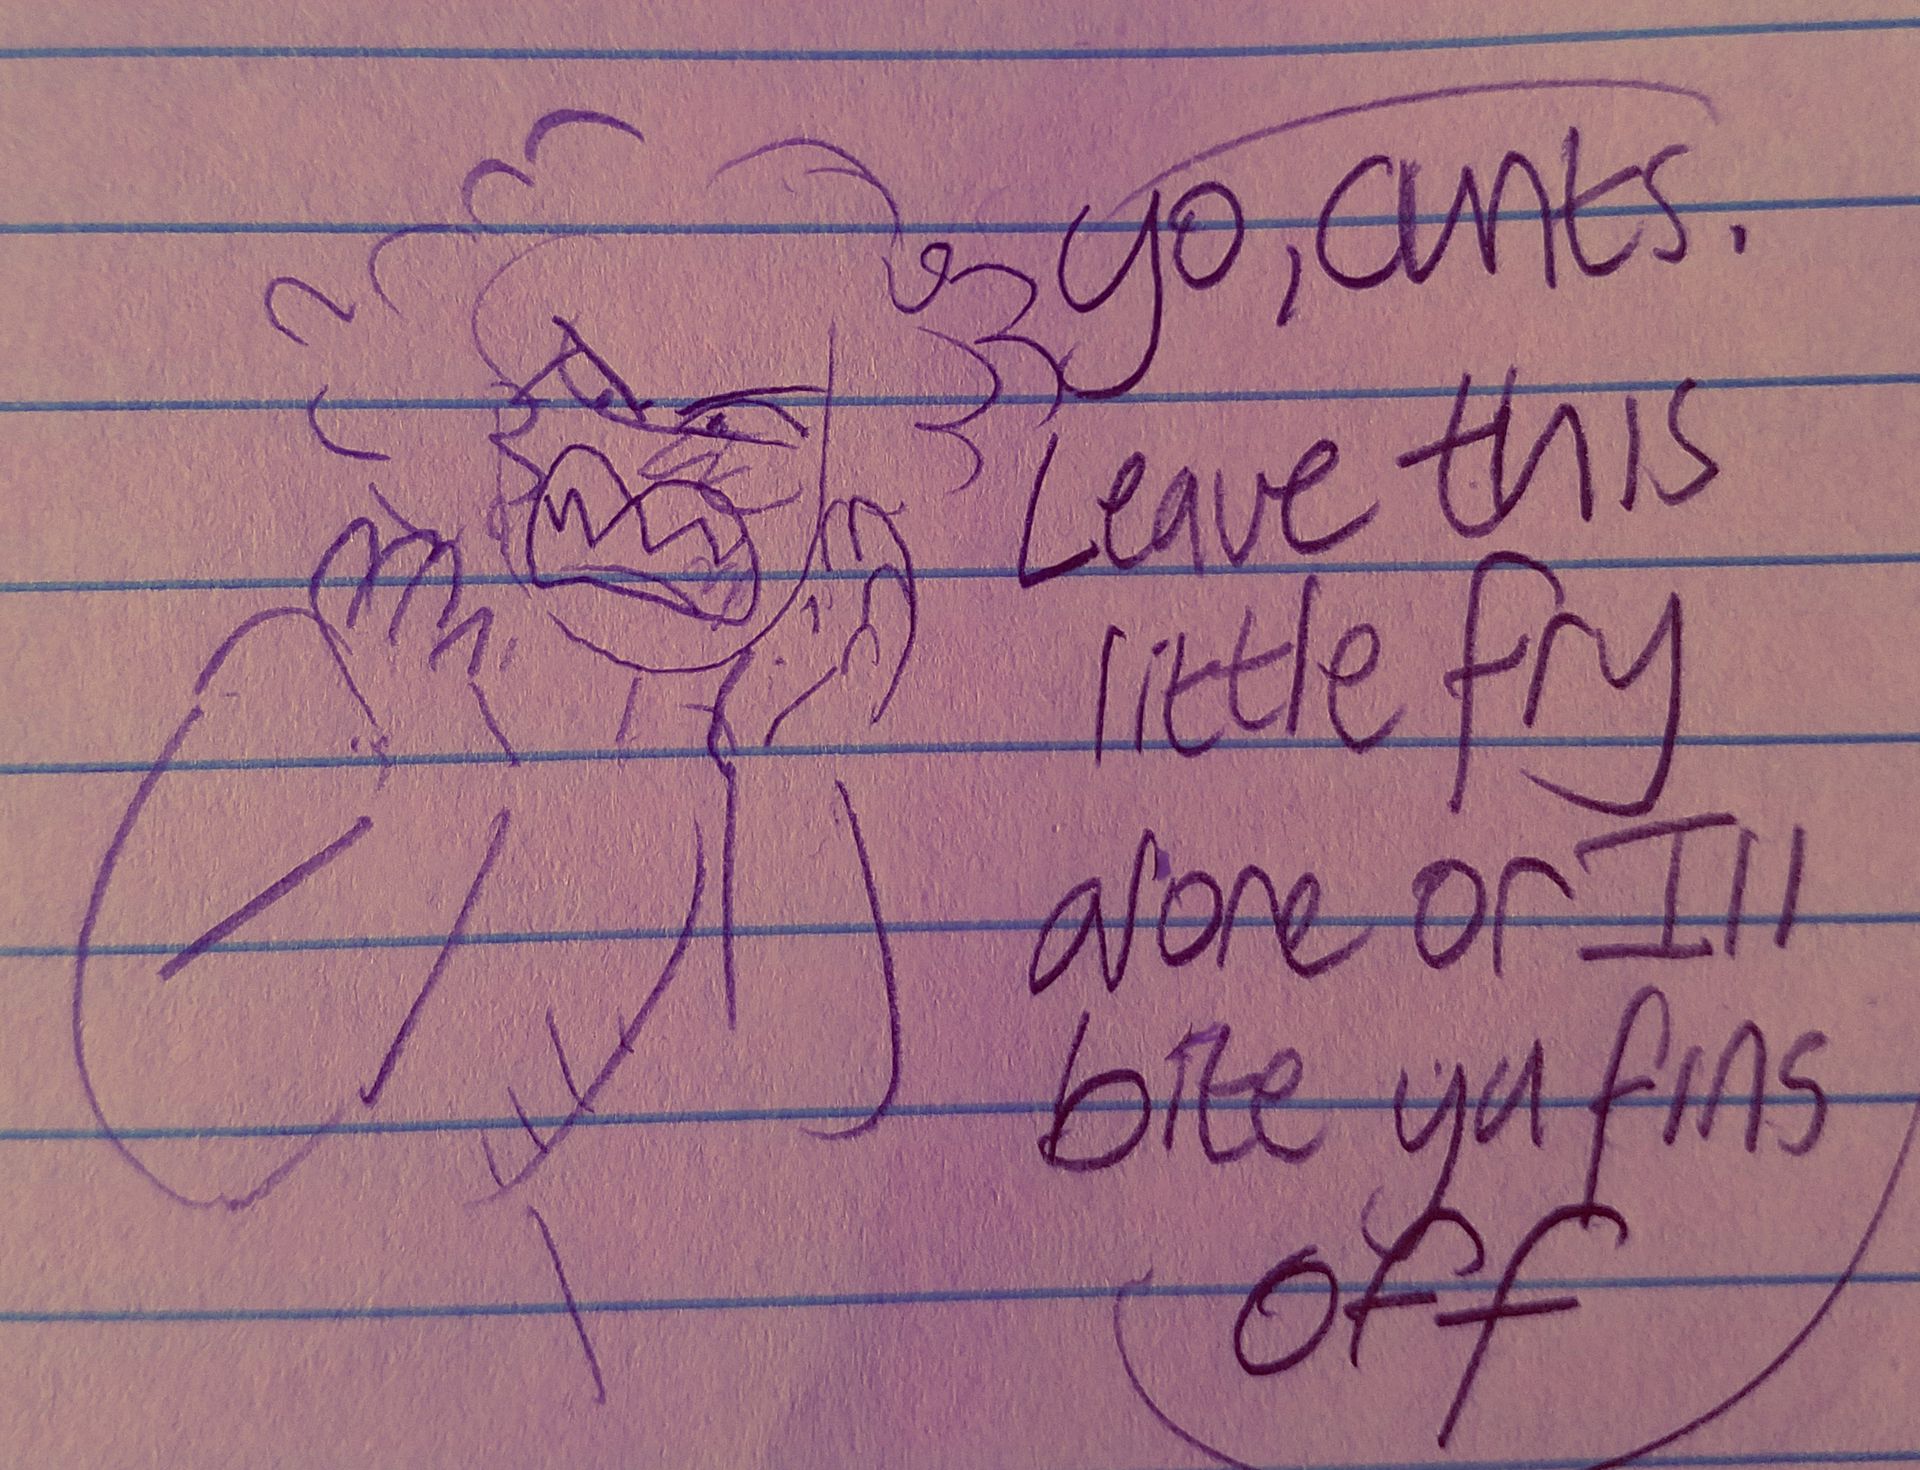 yo, ants.
Leave this
little fry
alone or Ill
bite ya fins
off